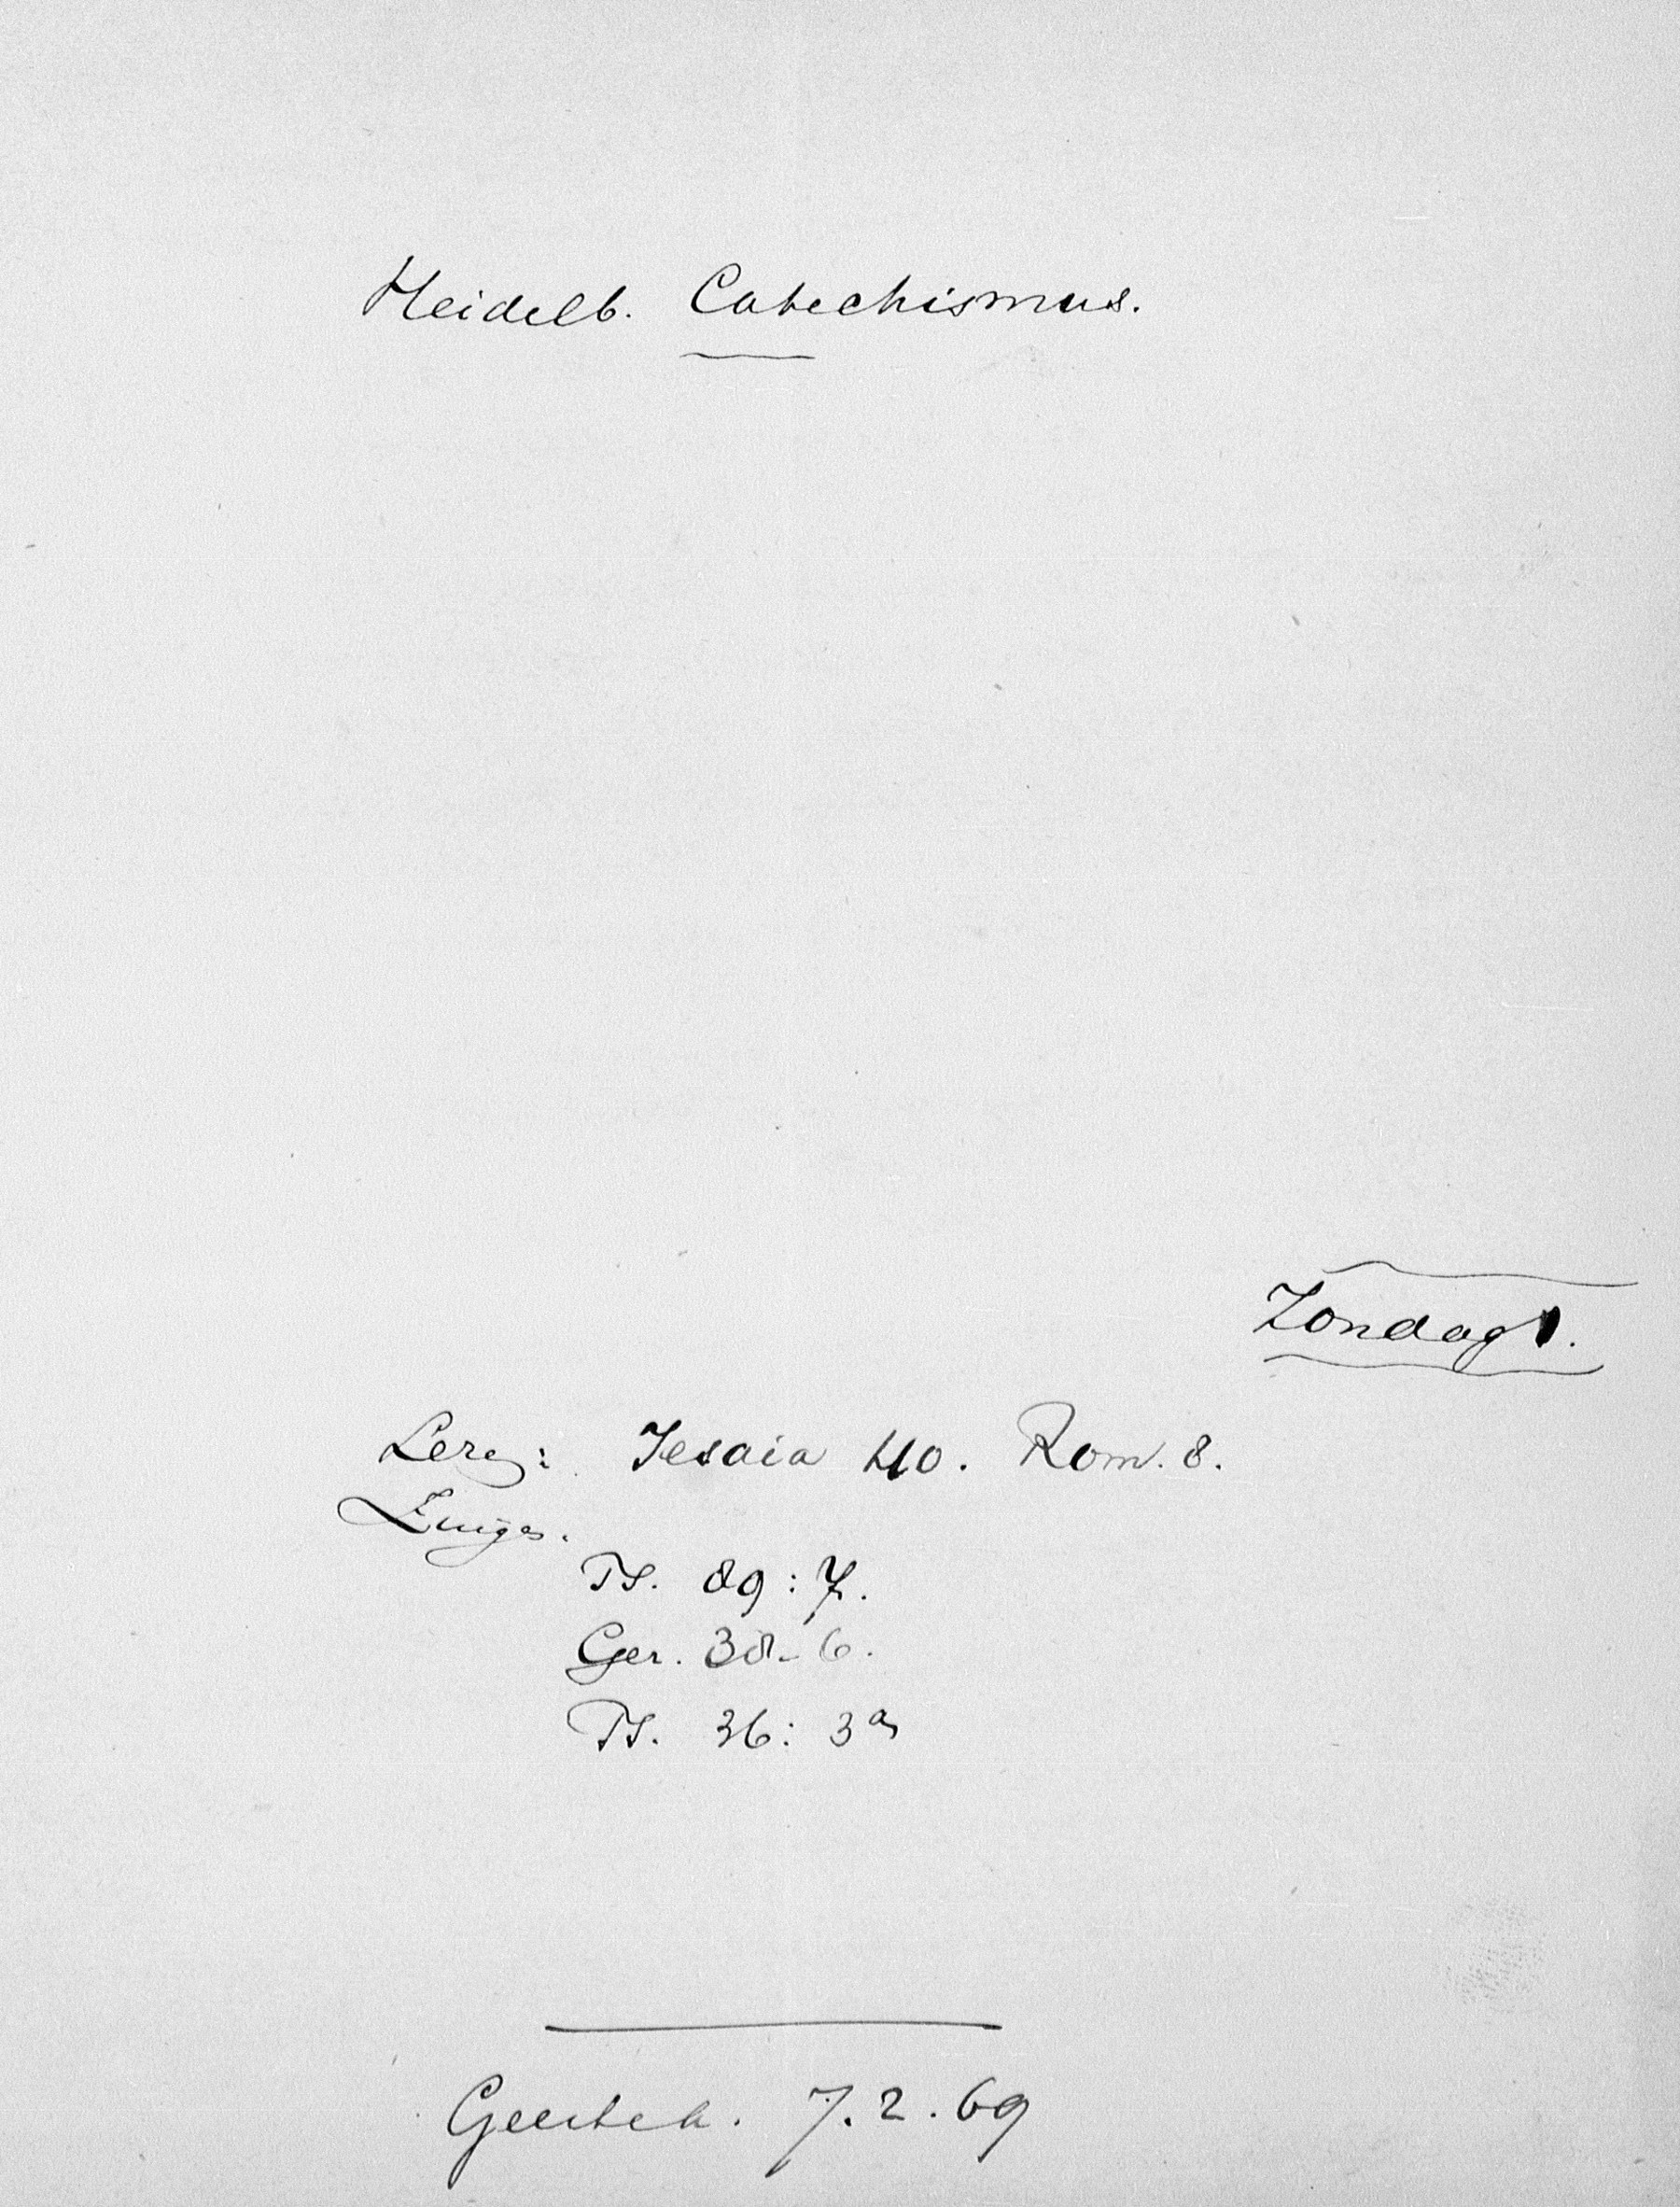 Heidelb. Catechismus.
Zondag 1.
Lezen: Jesaia 40. Rom. 8.
Zingen.
Ps. 89:7.
Gez. 38-6.
Ps. 36: 3a
7.2.69